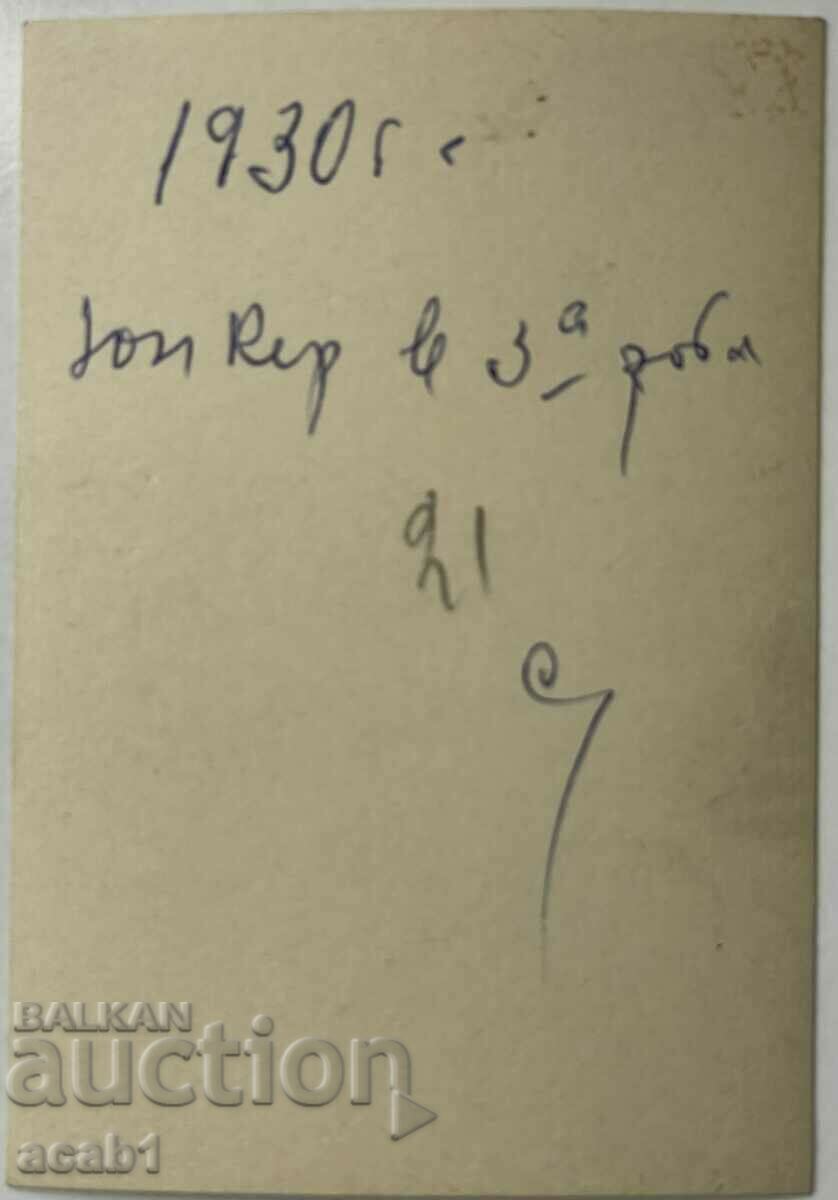 1930 г.
Юнкер в 3а рота
21
BALKAN
auction
acab1